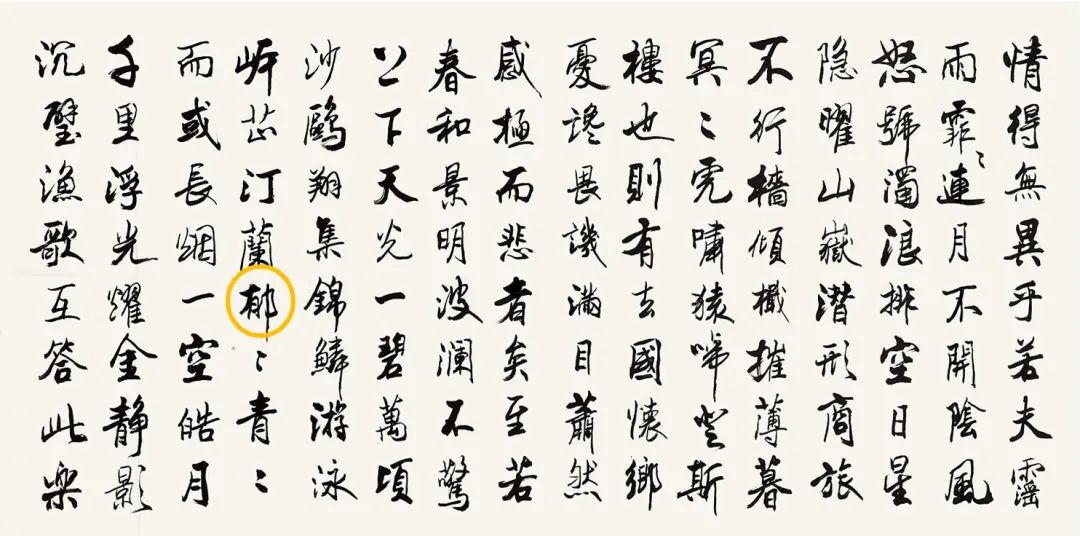 情得無異乎若夫霪
雨霏〻連月不開陰風
怒號濁浪排空日星
隐曜山嶽潜形商旅
不行檣傾檝摧薄暮
冥〻虎嘯猿啼登斯
樓也則有去國懷鄉
憂讒畏譏滿目蕭然
感極而悲者矣至若
春和景明波瀾不驚
上下天光一碧萬頃
沙鷗翔集錦鱗游泳
岸芷汀蘭郁〻青〻
而或長烟一空皓月
千里浮光耀金静影
沉璧漁歌互答此樂